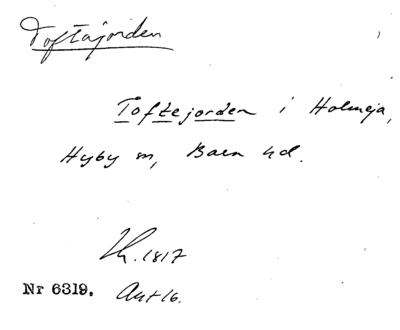 Toftajorden
Toftejorden i Holmeja,
Hyby sn, Bara hd.
Lh. 1817
Nr 6319. Akt 16.